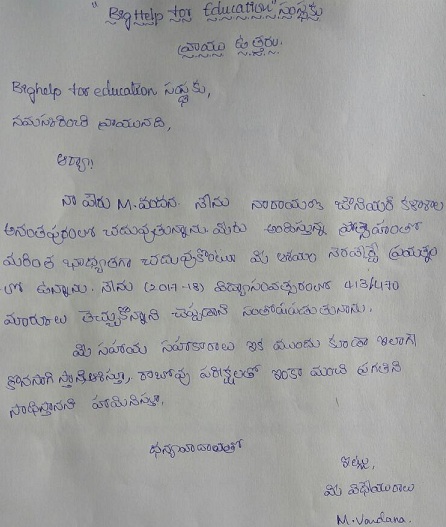 "Big Help for Education" సంస్థకు
వ్రాయు ఉత్తరం.
Bighelp for education సంస్థకు,
నమస్కరించి వ్రాయునది,
ఆర్యా!
నా పేరు M. వందన. నేను నారాయణ జూనియర్ కళాశాల
అనంతపురంలో చదువుతున్నాను. మీరు అందిస్తున్న ప్రోత్సాహంతో
మరింత బాధ్యతగా చదువుకొంటూ మీ ఆశయం నెరవేర్చే ప్రయత్నం
లో ఉన్నాను. నేను (2017-18) విద్యాసంవత్సరంలో 413/470
మార్కులు తెచ్చుకొన్నానని చెప్పడానికి సంతోషపడుతున్నాను.
మీ సహాయ సహకారాలు ఇక ముందు కుడా ఇలాగే
కొనసాగి స్తారని ఆశిస్తూ, రాబోవు పరీక్షలలో ఇంకా మంచి ప్రగతిని
సాధిస్తానని హామినిస్తూ.
ధన్యవాదాలతో
ఇట్లు,
మీ విధేయురాలు
M. Vandana.